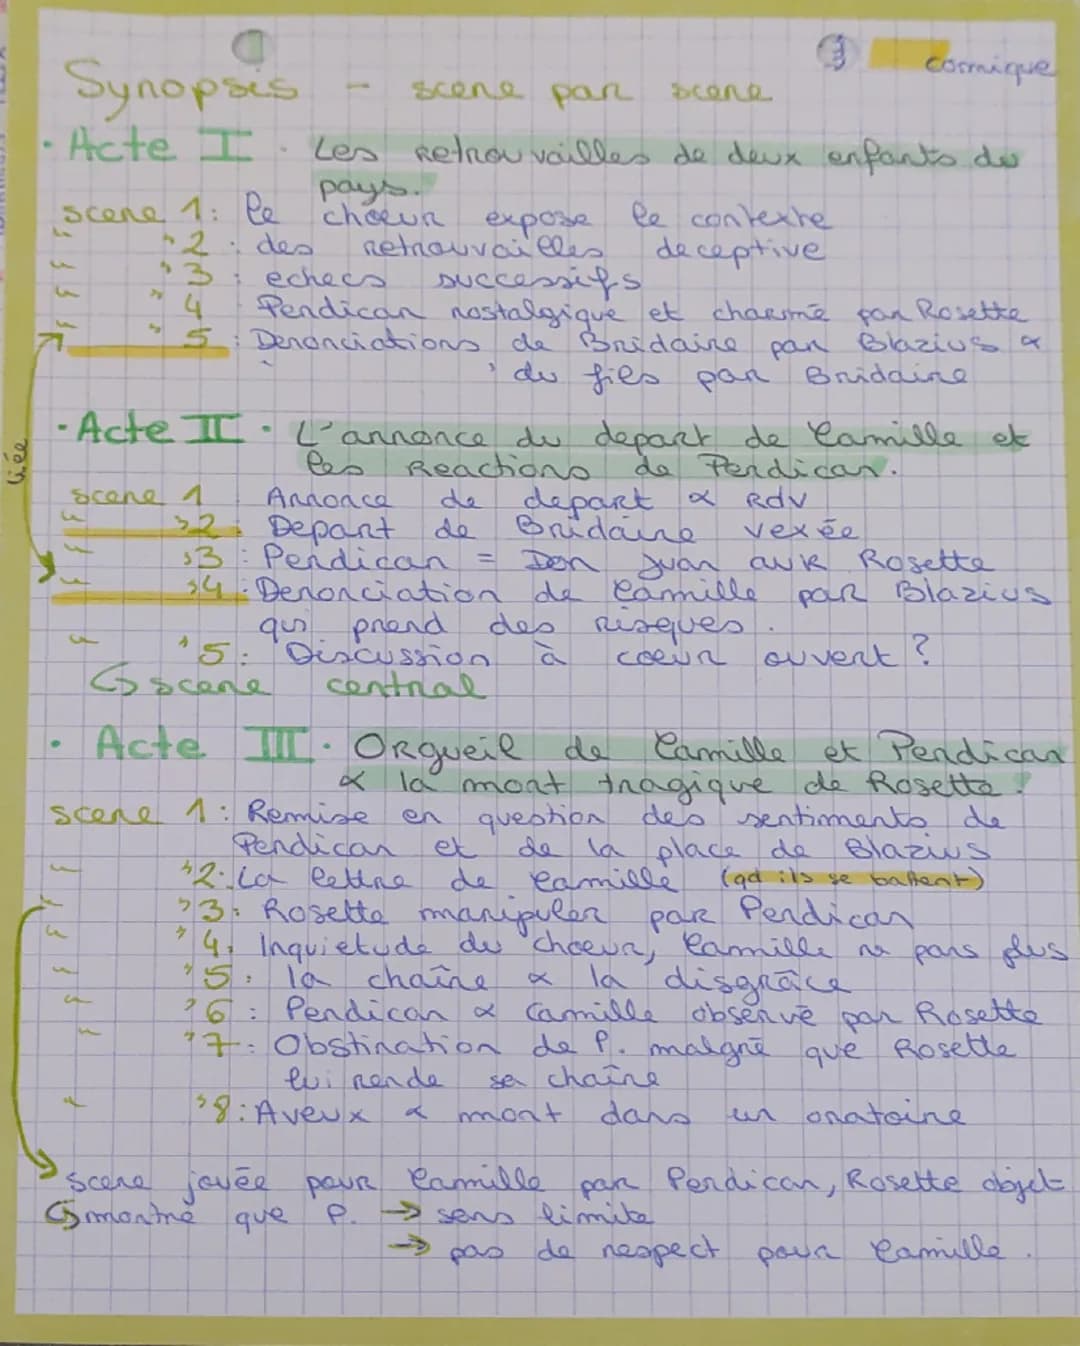 comique
Synopsis - scene par scene
• Acte I. Les Retrouvailles de deux enfants du
pays.
scene 1: le choeur expose le contexte
" " 2: des retrouvailles deceptive
" " 3: echecs successifs
" " 4 Perdican nostalgique et charmé par Rosette
" " 5: Denonciations de Bridaine par Blazius &
" du fils par Bridaine
liée
• Acte II. L'annonce du depart de Camille et
les Reactions de Perdican.
scene 1 Annonce de depart & RDV
" " 2: Depart de Bridaine vexée
" " 3: Perdican = Don Juan avk Rosette
" " 4: Denonciation de Camille par Blazius
qui prend des risques.
" " 5: Discussion à coeur ouvert ?
↳ scene central
• Acte III. Orgueil de Camille et Perdican
& la mort tragique de Rosette !
scene 1: Remise en question des sentiments de
Perdican et de la place de Blazius
" " 2: La lettre de Camille (qd ils se battent)
" " 3: Rosette manipuler par Perdican
" " 4: Inquietude du choeur, Camille ne pars plus
" " 5: la chaîne & la disgrâce
" " 6: Perdican & Camille observé par Rosette
" " 7: Obstination de P. malgré que Rosette
lui rende sa chaîne
" " 8: Aveux & mort dans un oratoire
scene jouée pour Camille par Perdican, Rosette objet
↳ montre que P. → sens limite
→ pas de respect pour Camille.